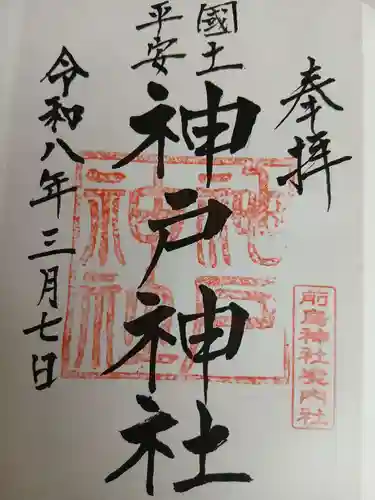 奉拝
國土
平安
神戸神社
令和八年三月七日
神戸神社
前鳥神社境内社